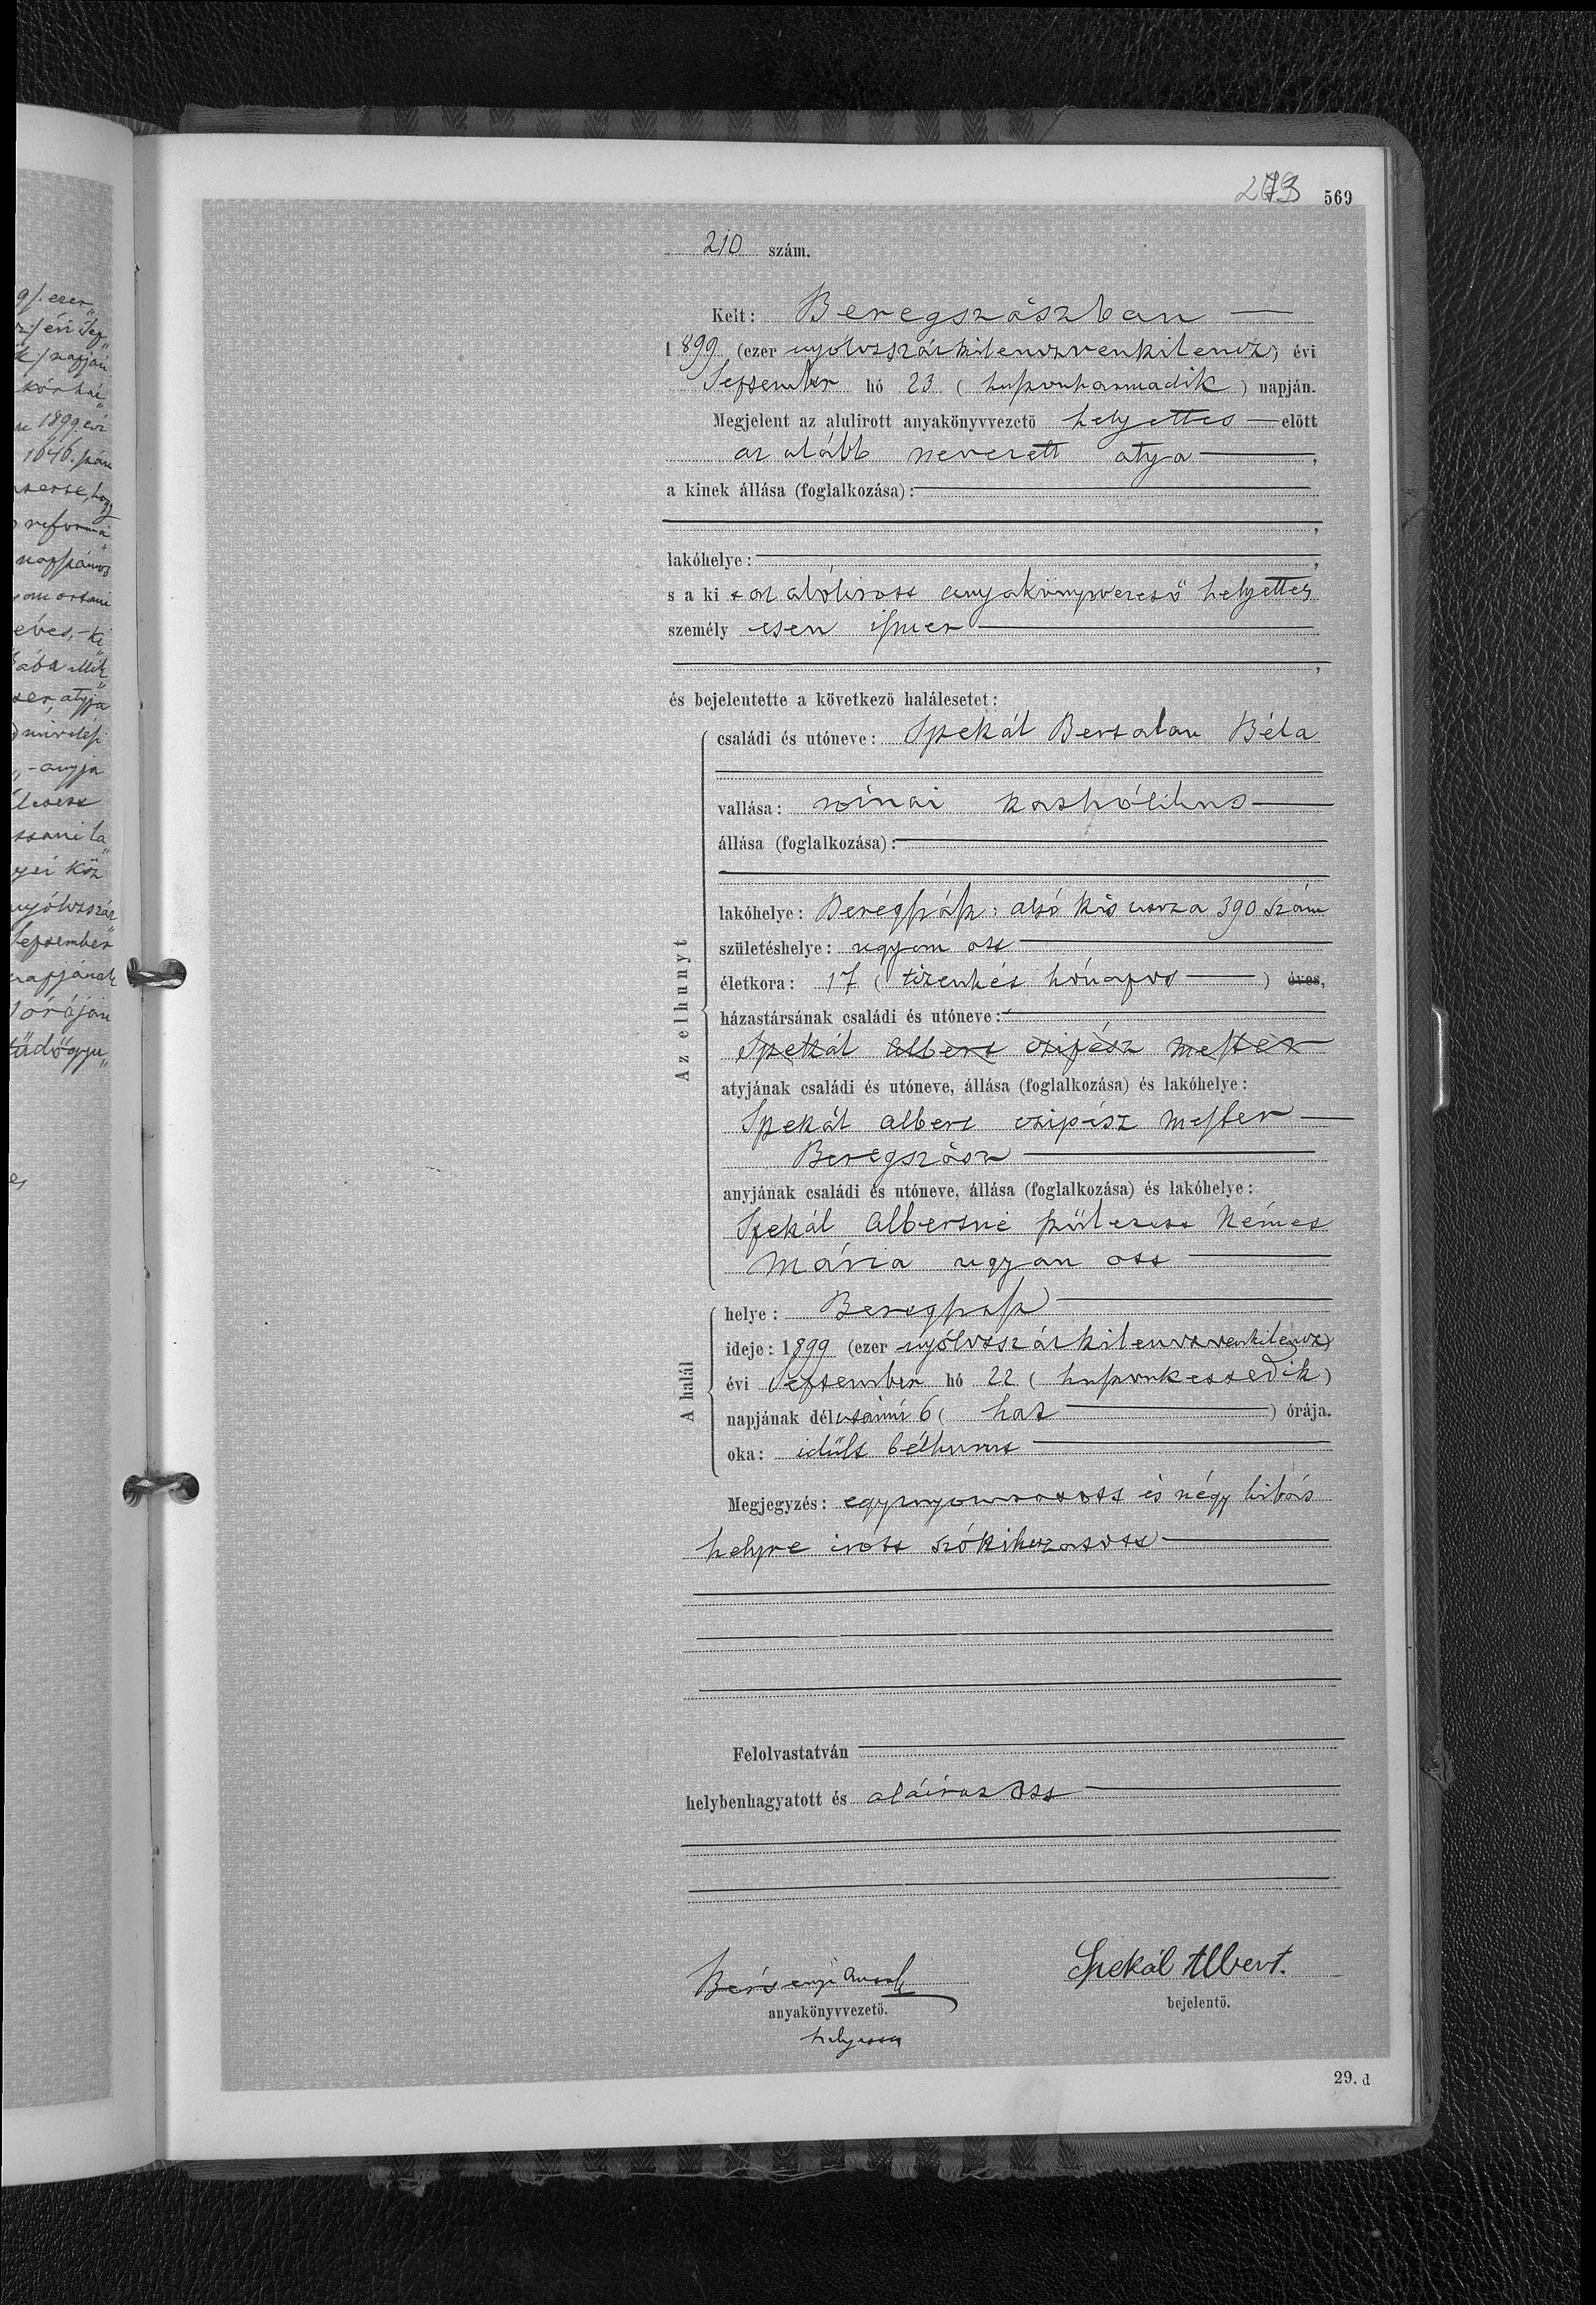 g/. ezer
k/ napján
kórhá
1899 évi
1646. szám
reformá
napszámos
éves, ki
atyja
anyja
közz
September
napjának
órá­ján
273 569
210 szám.
Kelt: Beregszászban
1899 (ezer nyolczszázkilenczvenkilencz) évi
September hó 23 (huszonharmadik) napján.
Megjelent az alulirott anyakönyvvezető helyettes előtt
az alább nevezett atya,
a kinek állása (foglalkozása):
,
lakóhelye: ,
s a kit az alólirott anyakönyvvezető helyettes
személyesen ismer
,
és bejelentette a következő halálesetet:
Az elhunyt
családi és utóneve: Spekál Bertalan Béla
vallása: római katholikus
állása (foglalkozása):
lakóhelye: Beregszász: alsó kis utcza 390 szám
születéshelye: ugyan ott
életkora: 17 (tizenhét hónapos) éves,
házastársának családi és utóneve:
Spekál Albert czipész mester
atyjának családi és utóneve, állása (foglalkozása) és lakóhelye:
Spekál Albert czipész mester
Beregszász
anyjának családi és utóneve, állása (foglalkozása) és lakóhelye:
Spekál Albertné született Német
Mária ugyan ott
A halál
helye: Beregszász
ideje: 1899 (ezer nyólczszázkilenczvenkilencz)
évi September hó 22 (huszonkettedik)
napjának délutáni 6 (hat) órája.
oka: idült bélhurut
Megjegyzés: egy nyomtatott és négy hibás
helyre irott szó kihuzatott
Felolvastatván
helybenhagyatott és aláiratott
Spekál Albert.
anyakönyvvezető. bejelentő.
helyettes
29. d